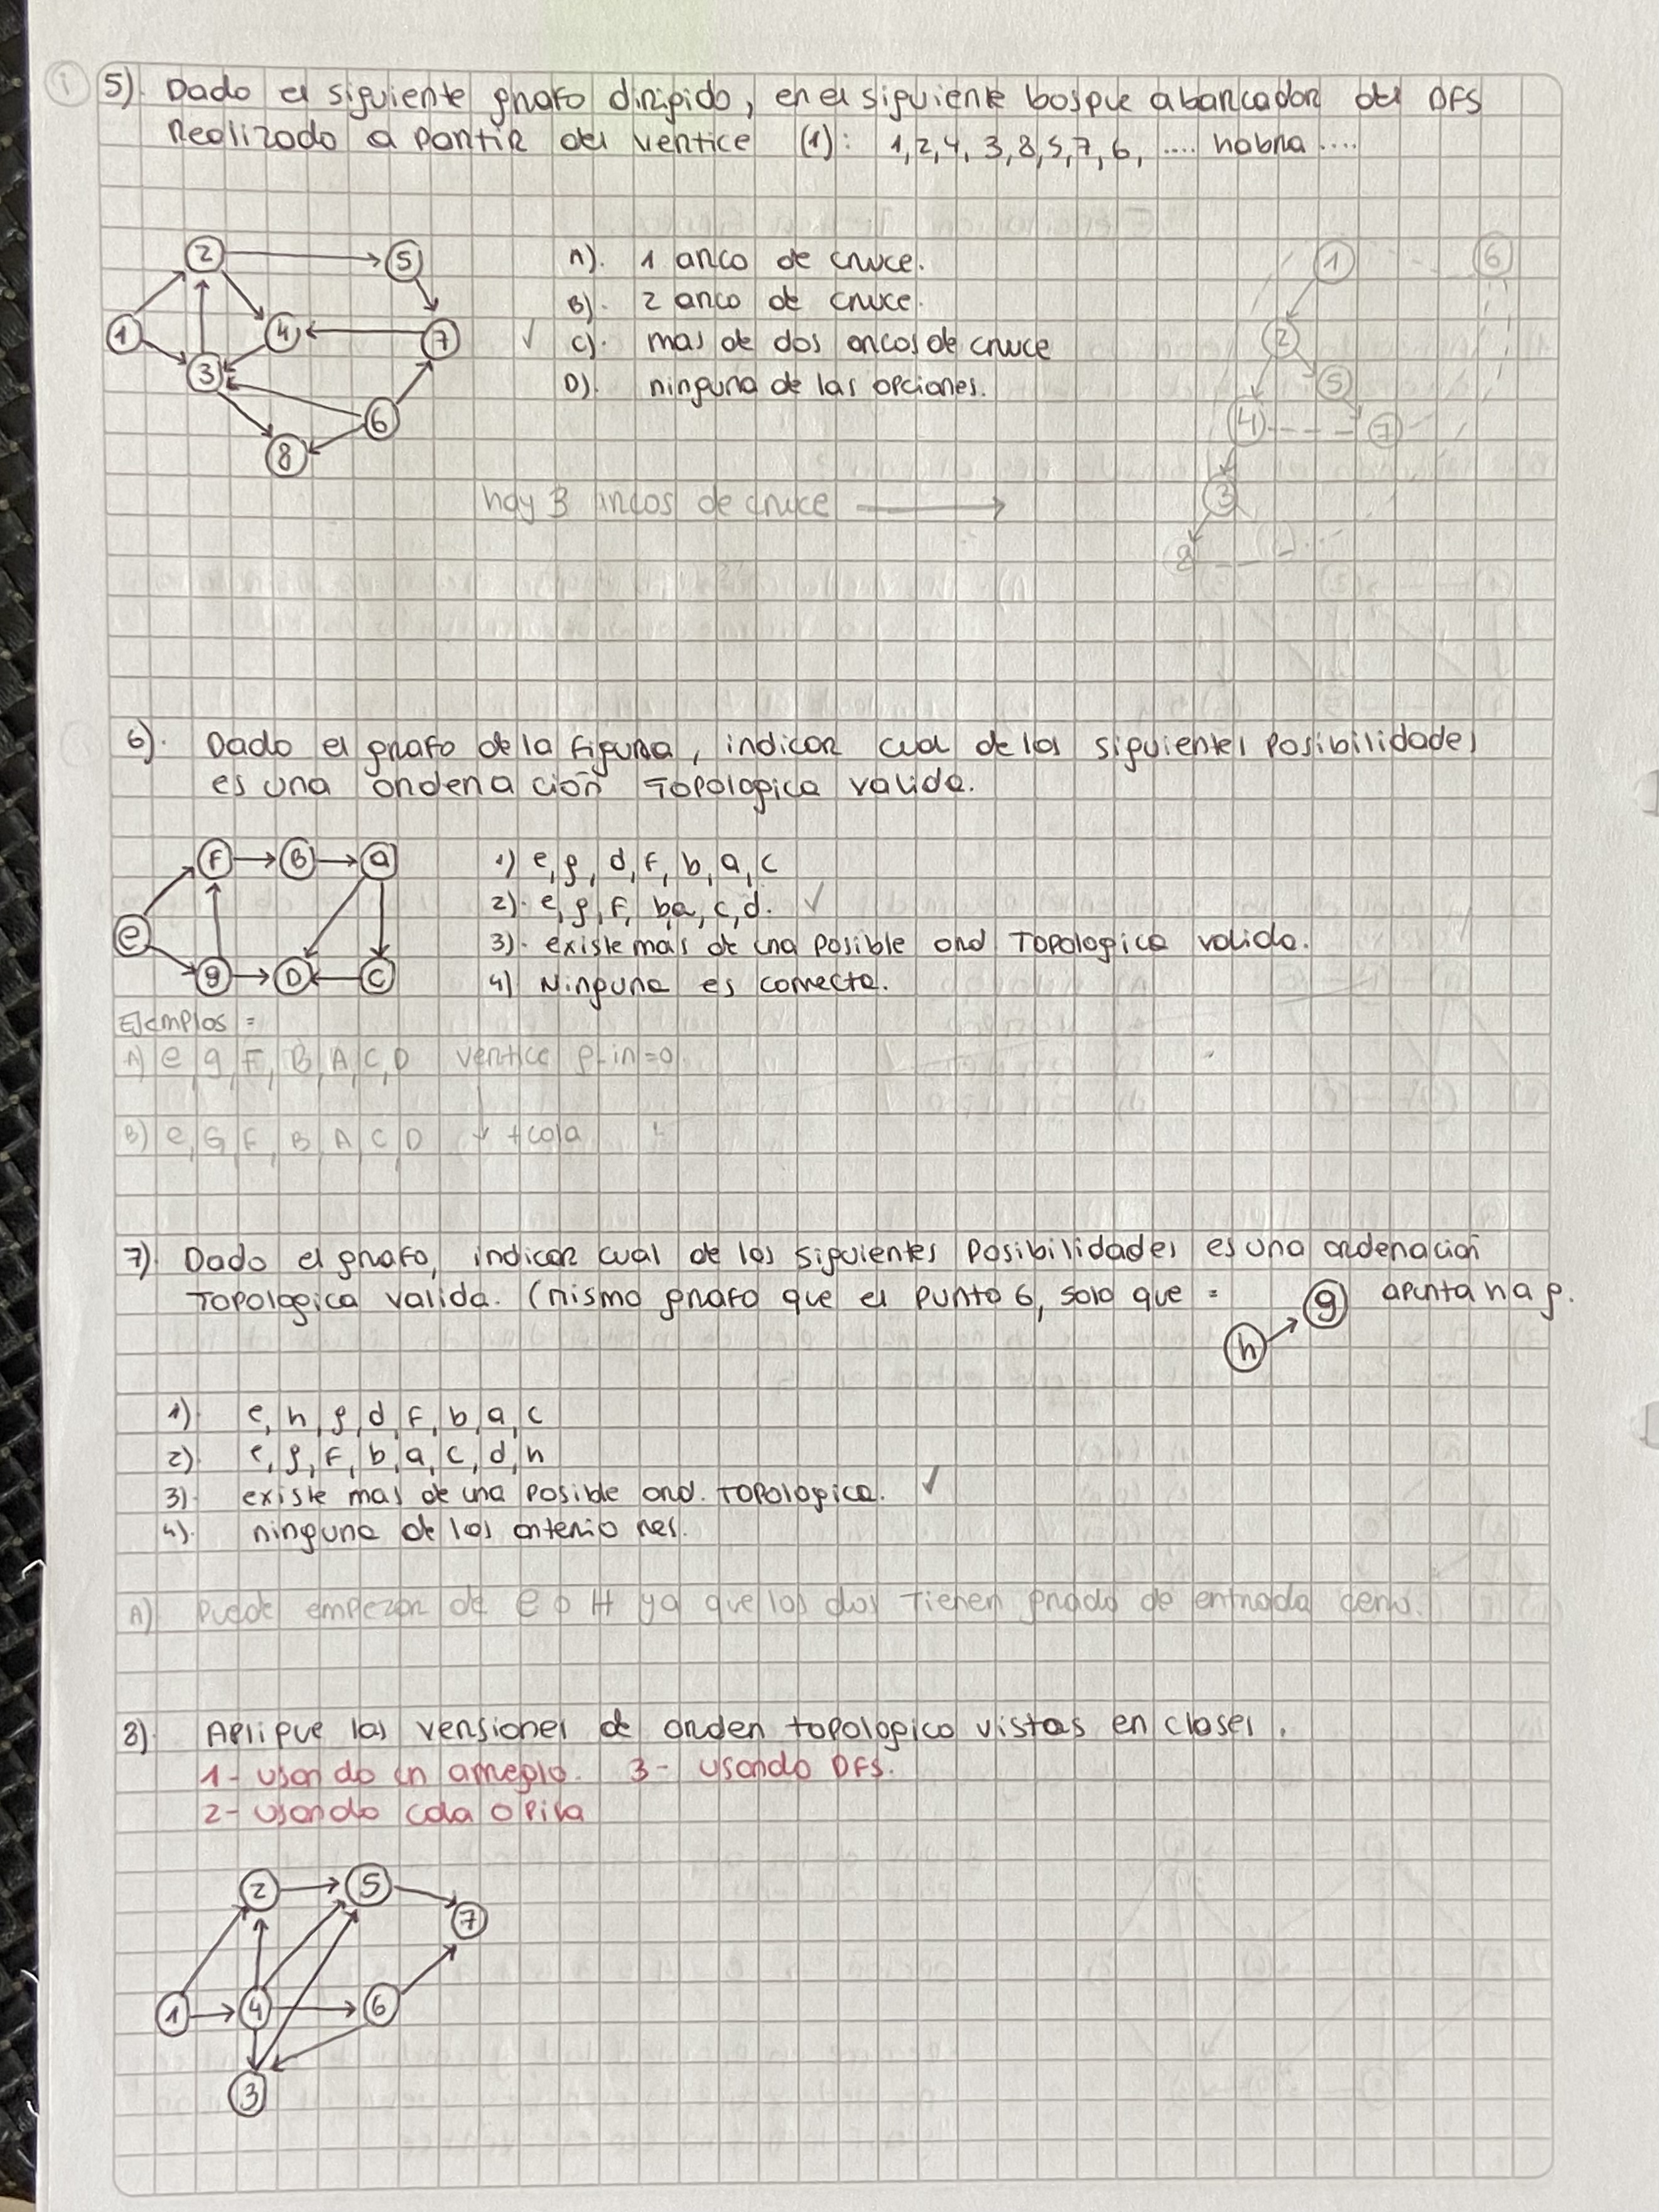 5). Dado el siguiente grafo dirigido, en el siguiente bosque abarcador del DFS
Realizado a partir del vertice (1): 1,2,4, 3,8,5,7,6, .... habra ....
2 5
1 4 7
3
6
8
A). 1 arco de cruce.
B). 2 arco de cruce.
✓ C). mas de dos arcos de cruce
D). ninguna de las opciones.
hay 3 arcos de cruce
1 6
2
5
4 7
3
8
6). Dado el grafo de la figura, indicar cual de las siguientes posibilidades
es una ordenación Topologica valida.
F B a
e
g D C
1) e, g, d, f, b, a, c
2). e, g, f, ba, c, d. ✓
3). existe mas de una posible ord Topologica valida.
4) Ninguna es correcta.
Ejemplos =
A) e, g, F, B, A, C, D vertice g-in=0.
B) e, G, F, B, A, C, D + cola
7). Dado el grafo, indicar cual de las siguientes Posibilidades es una ordenación
Topologica valida. (mismo grafo que el punto 6, solo que = h g apunta h a g.
1). e, h, g, d, f, b, a, c
2). e, g, f, b, a, c, d, h
3). existe mas de una posible ord. Topologica. ✓
4). ninguna de las anteriores.
A) Puede empezar de e o H ya que los dos Tienen grado de entrada cero.
8). Aplique las versiones de orden topologico vistas en clases.
1- usando un arreglo. 3- usando DFS.
2- usando cola o pila
2 5
7
1 4 6
3